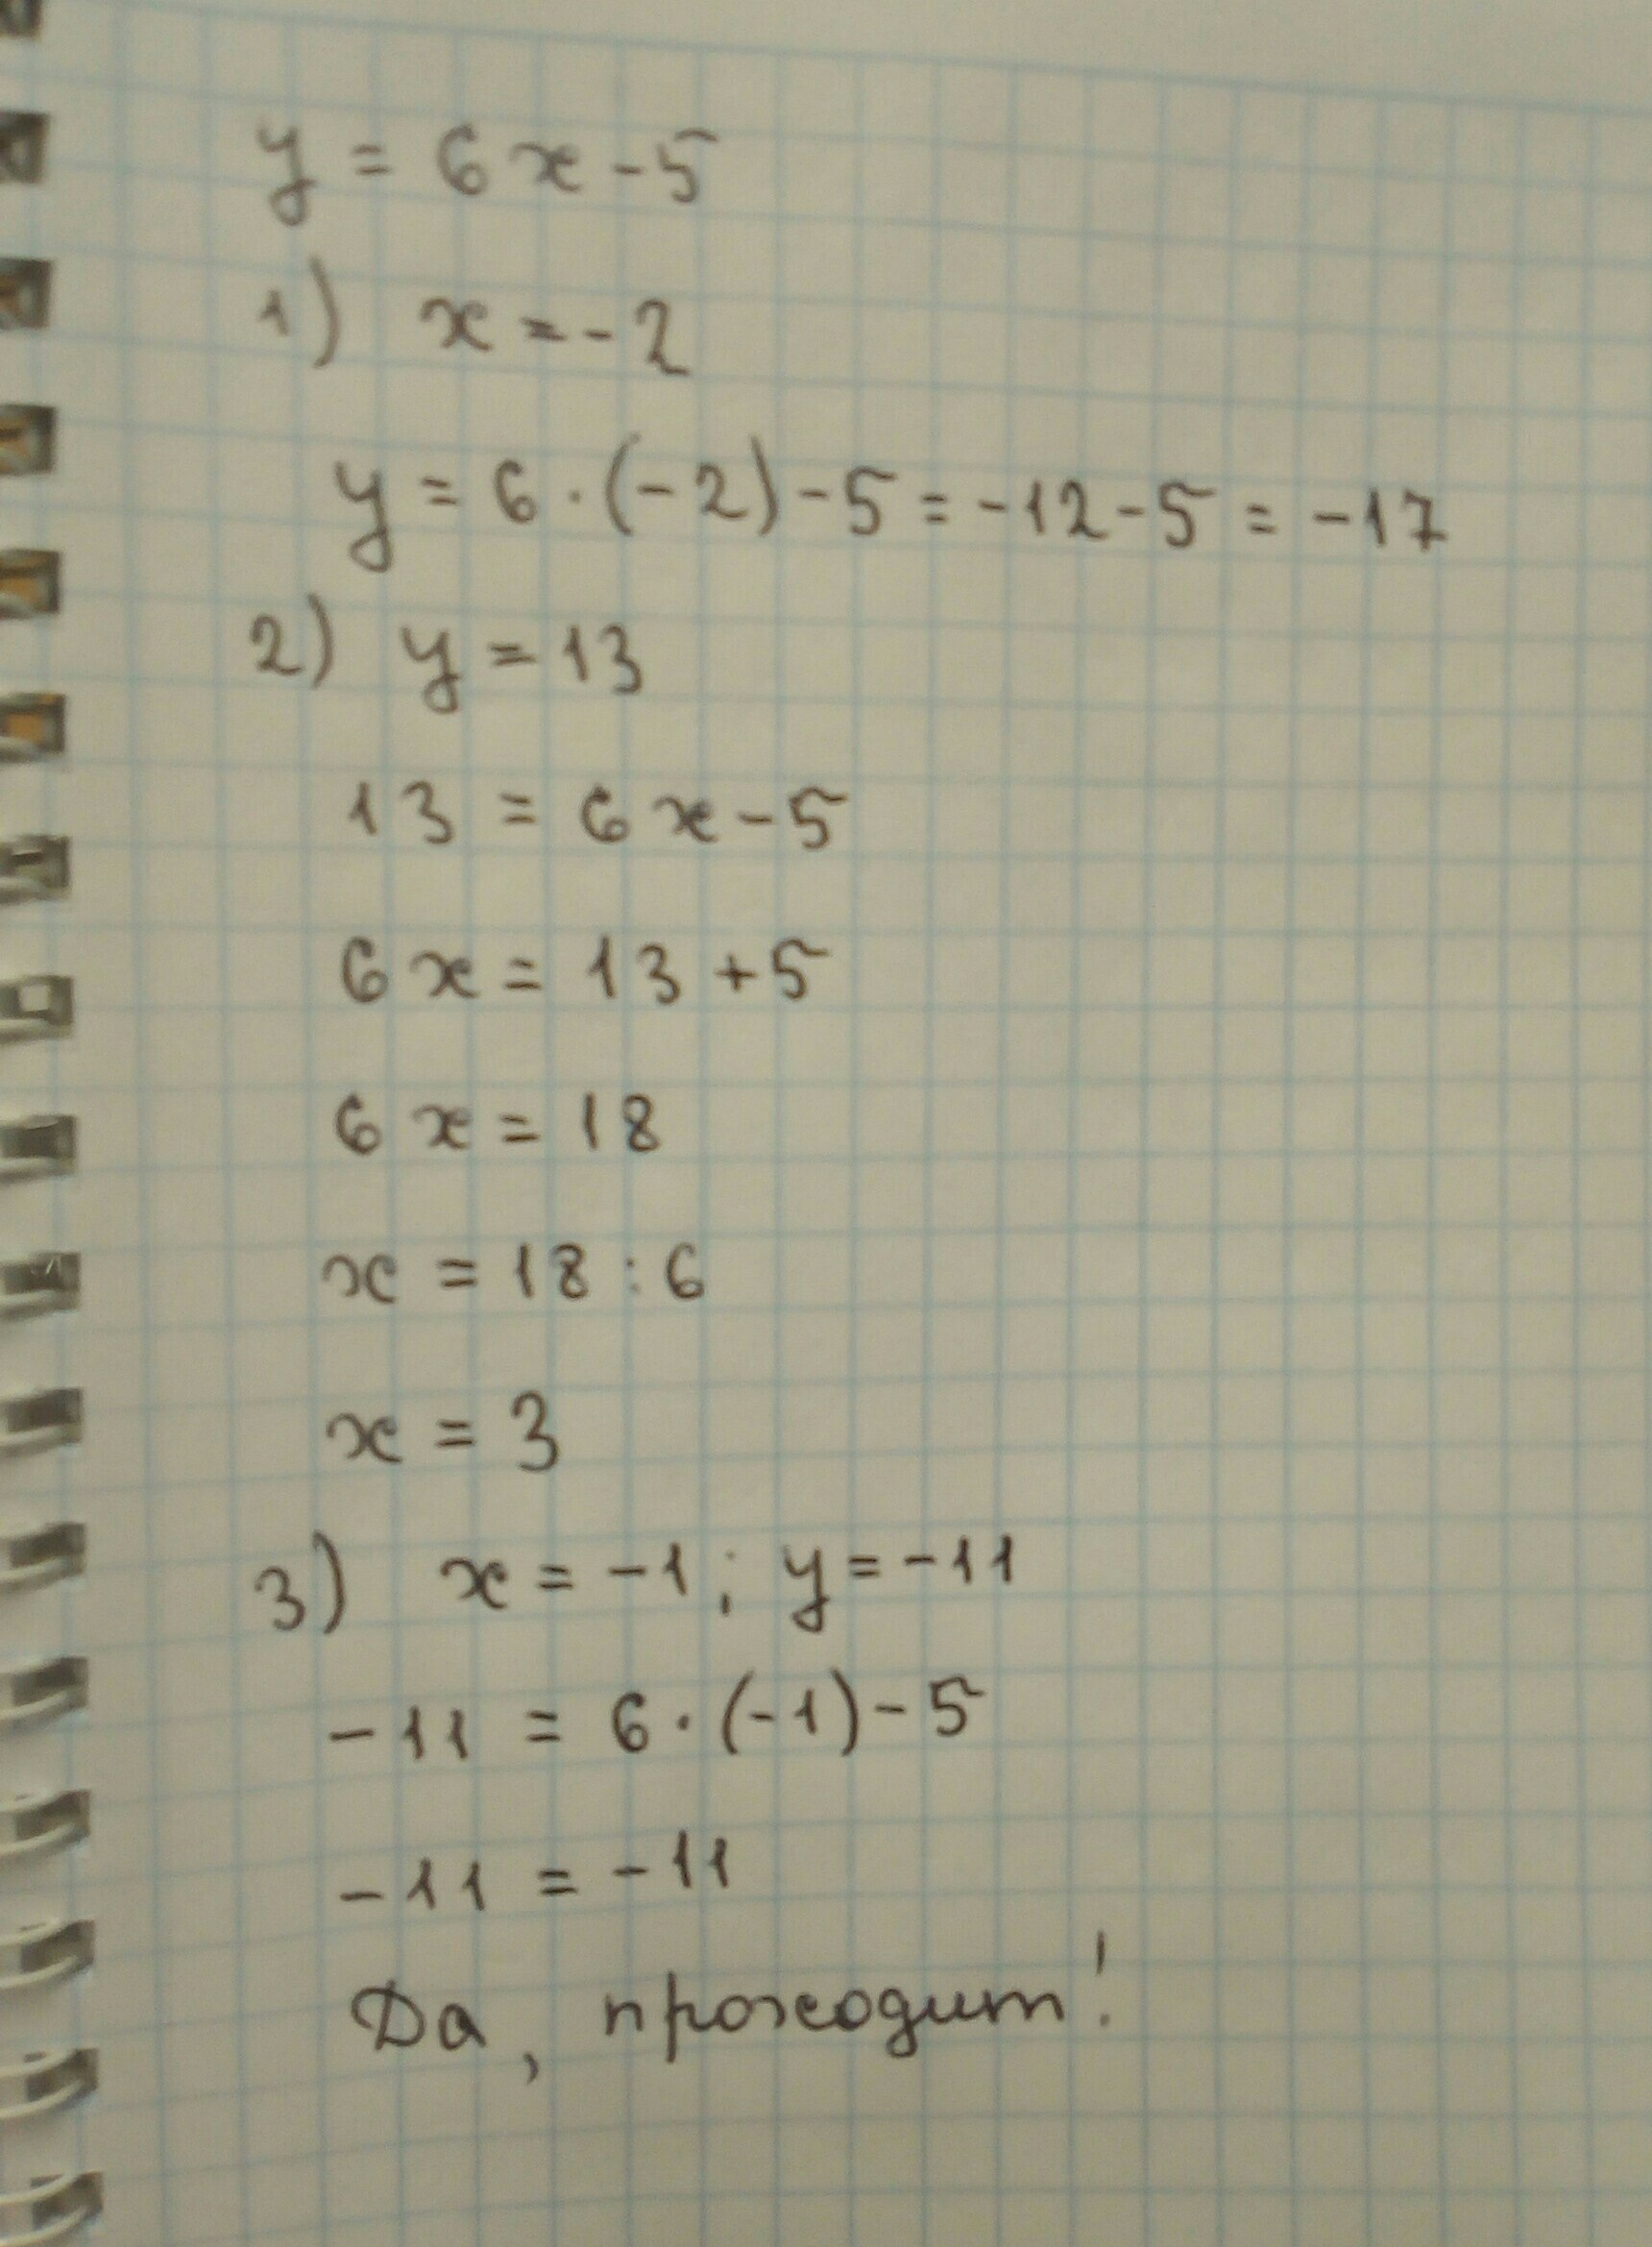 y = 6x - 5
1) x = -2
y = 6 · (-2) - 5 = -12 - 5 = -17
2) y = 13
13 = 6x - 5
6x = 13 + 5
6x = 18
x = 18 : 6
x = 3
3) x = -1; y = -11
-11 = 6 · (-1) - 5
-11 = -11
Да, проходит!